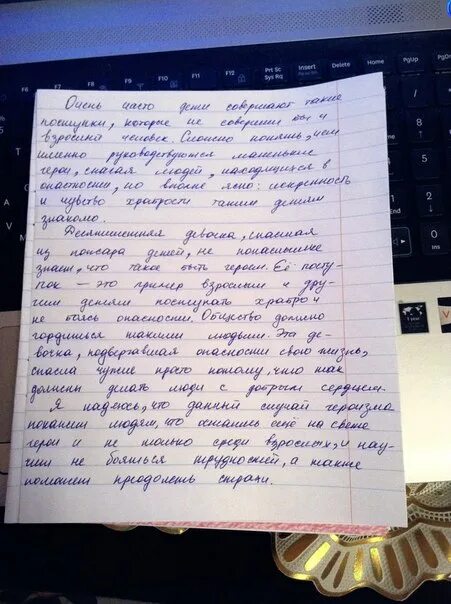 F6
F7
F8
F9
F10
F11
F12
Prt Sc
Sys Rq
Insert
Delete
Home
PgUp
Очень часто дети совершают такие
поступки, которые не совершит бы и
взрослый человек. Сложно понять, чем
именно руководствуются маленькие
герои, спасая людей, находящихся в
опасности, но вполне ясно: искренность
и чувство храбрости таким детям
знакомо.
Десятилетняя девочка, спасшая
из пожара детей, не понаслышке
знает, что такое быть героем. Её посту-
пок — это пример взрослым и дру-
гим детям поступать храбро и
не боясь опасности. Общество должно
гордиться такими людьми. Эта де-
вочка, подвергавшая опасности свою жизнь,
спасла чужие просто потому, что так
должны делать люди с добрым сердцем.
Я надеюсь, что данный случай героизма
покажет людям, что остались ещё на свете
герои и не только среди взрослых, и нау-
чит не бояться трудностей, а также
поможет преодолеть страхи.